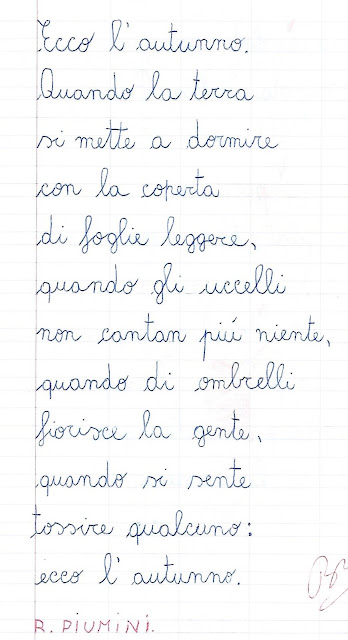 Ecco l'autunno.
Quando la terra
si mette a dormire
con la coperta
di foglie leggere,
quando gli uccelli
non cantan piú niente,
quando di ombrelli
fiorisce la gente,
quando si sente
tossire qualcuno:
ecco l'autunno.
R. PIUMINI.